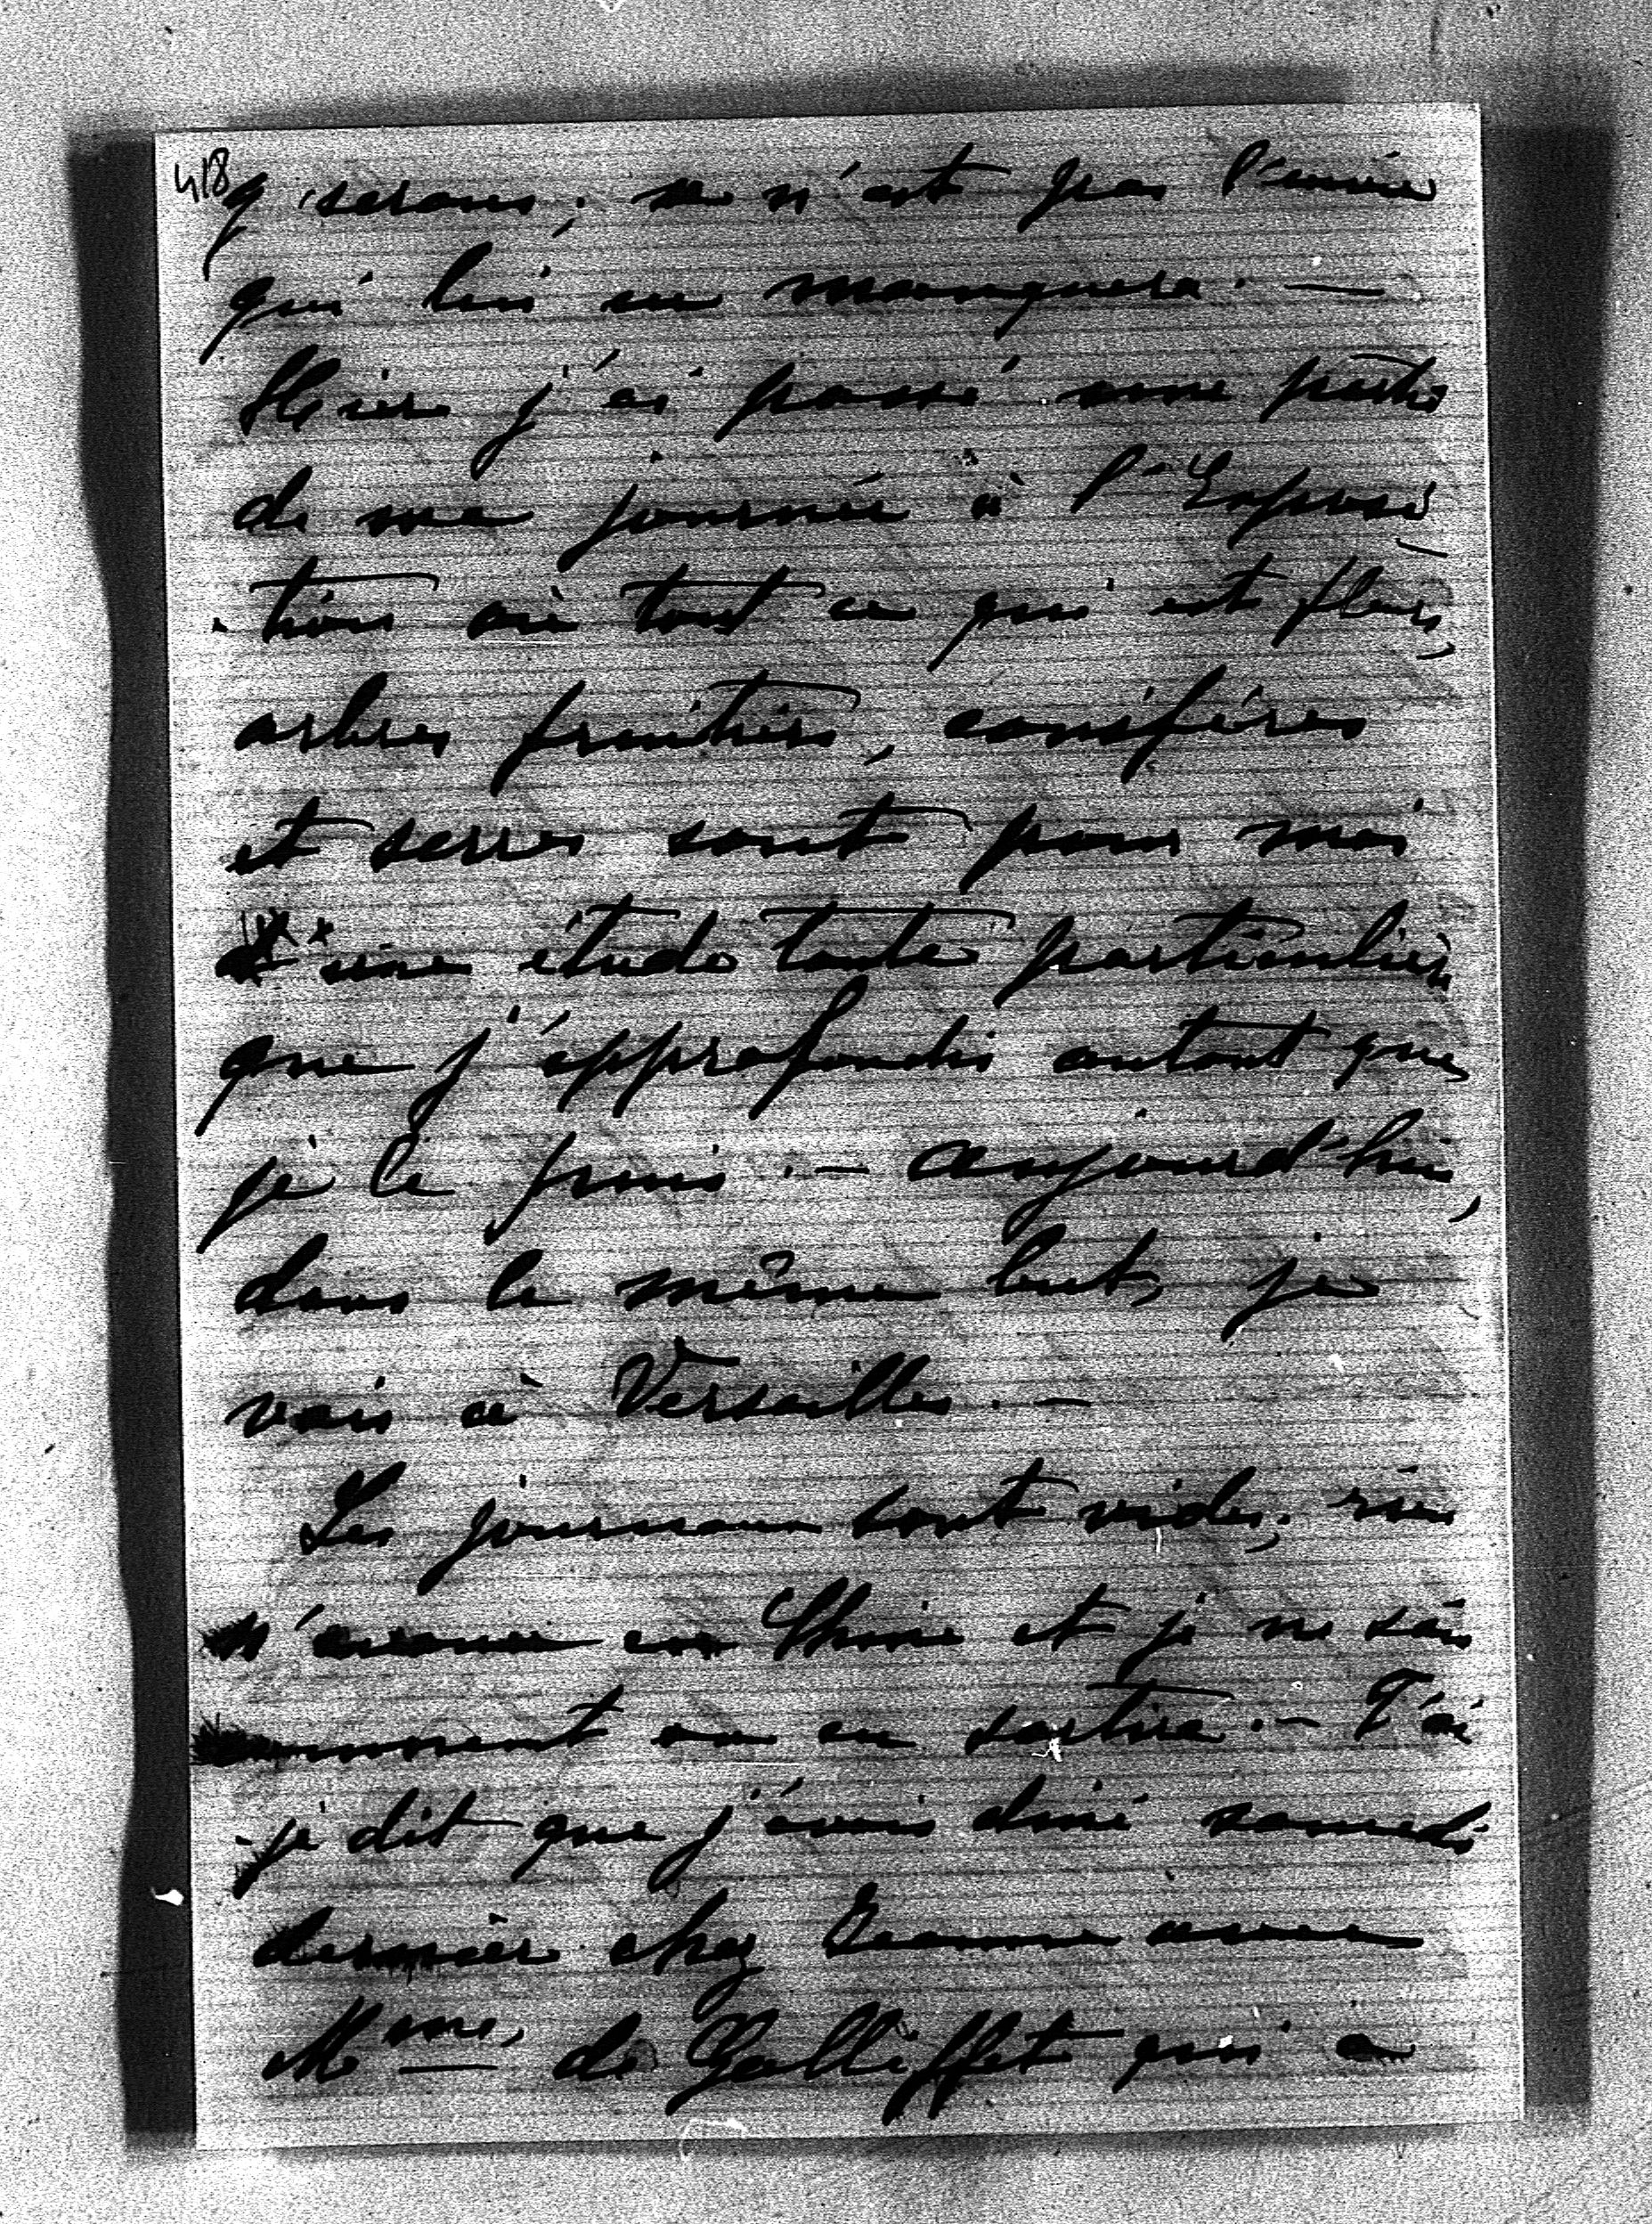 418
y serons ; ce n'est pas l'envie
qui lui en manquera. —
Hier j'ai passé une partie
de ma journée à l'Exposi
-tion où tout ce qui est fleurs,
arbres fruitiers, conifères
et serres sont pour moi
une étude toute particulière
que j'approfondis autant que
je le puis. — Aujourd'hui,
dans le même but, je
vais à Versailles. —
Les journaux sont vides ; rien
n'avance en Chine et je ne sais
comment on en sortira. — T'ai
-je dit que j'avais diné samedi
dernier chez Jeanne avec
Mme de Galliffet qui a